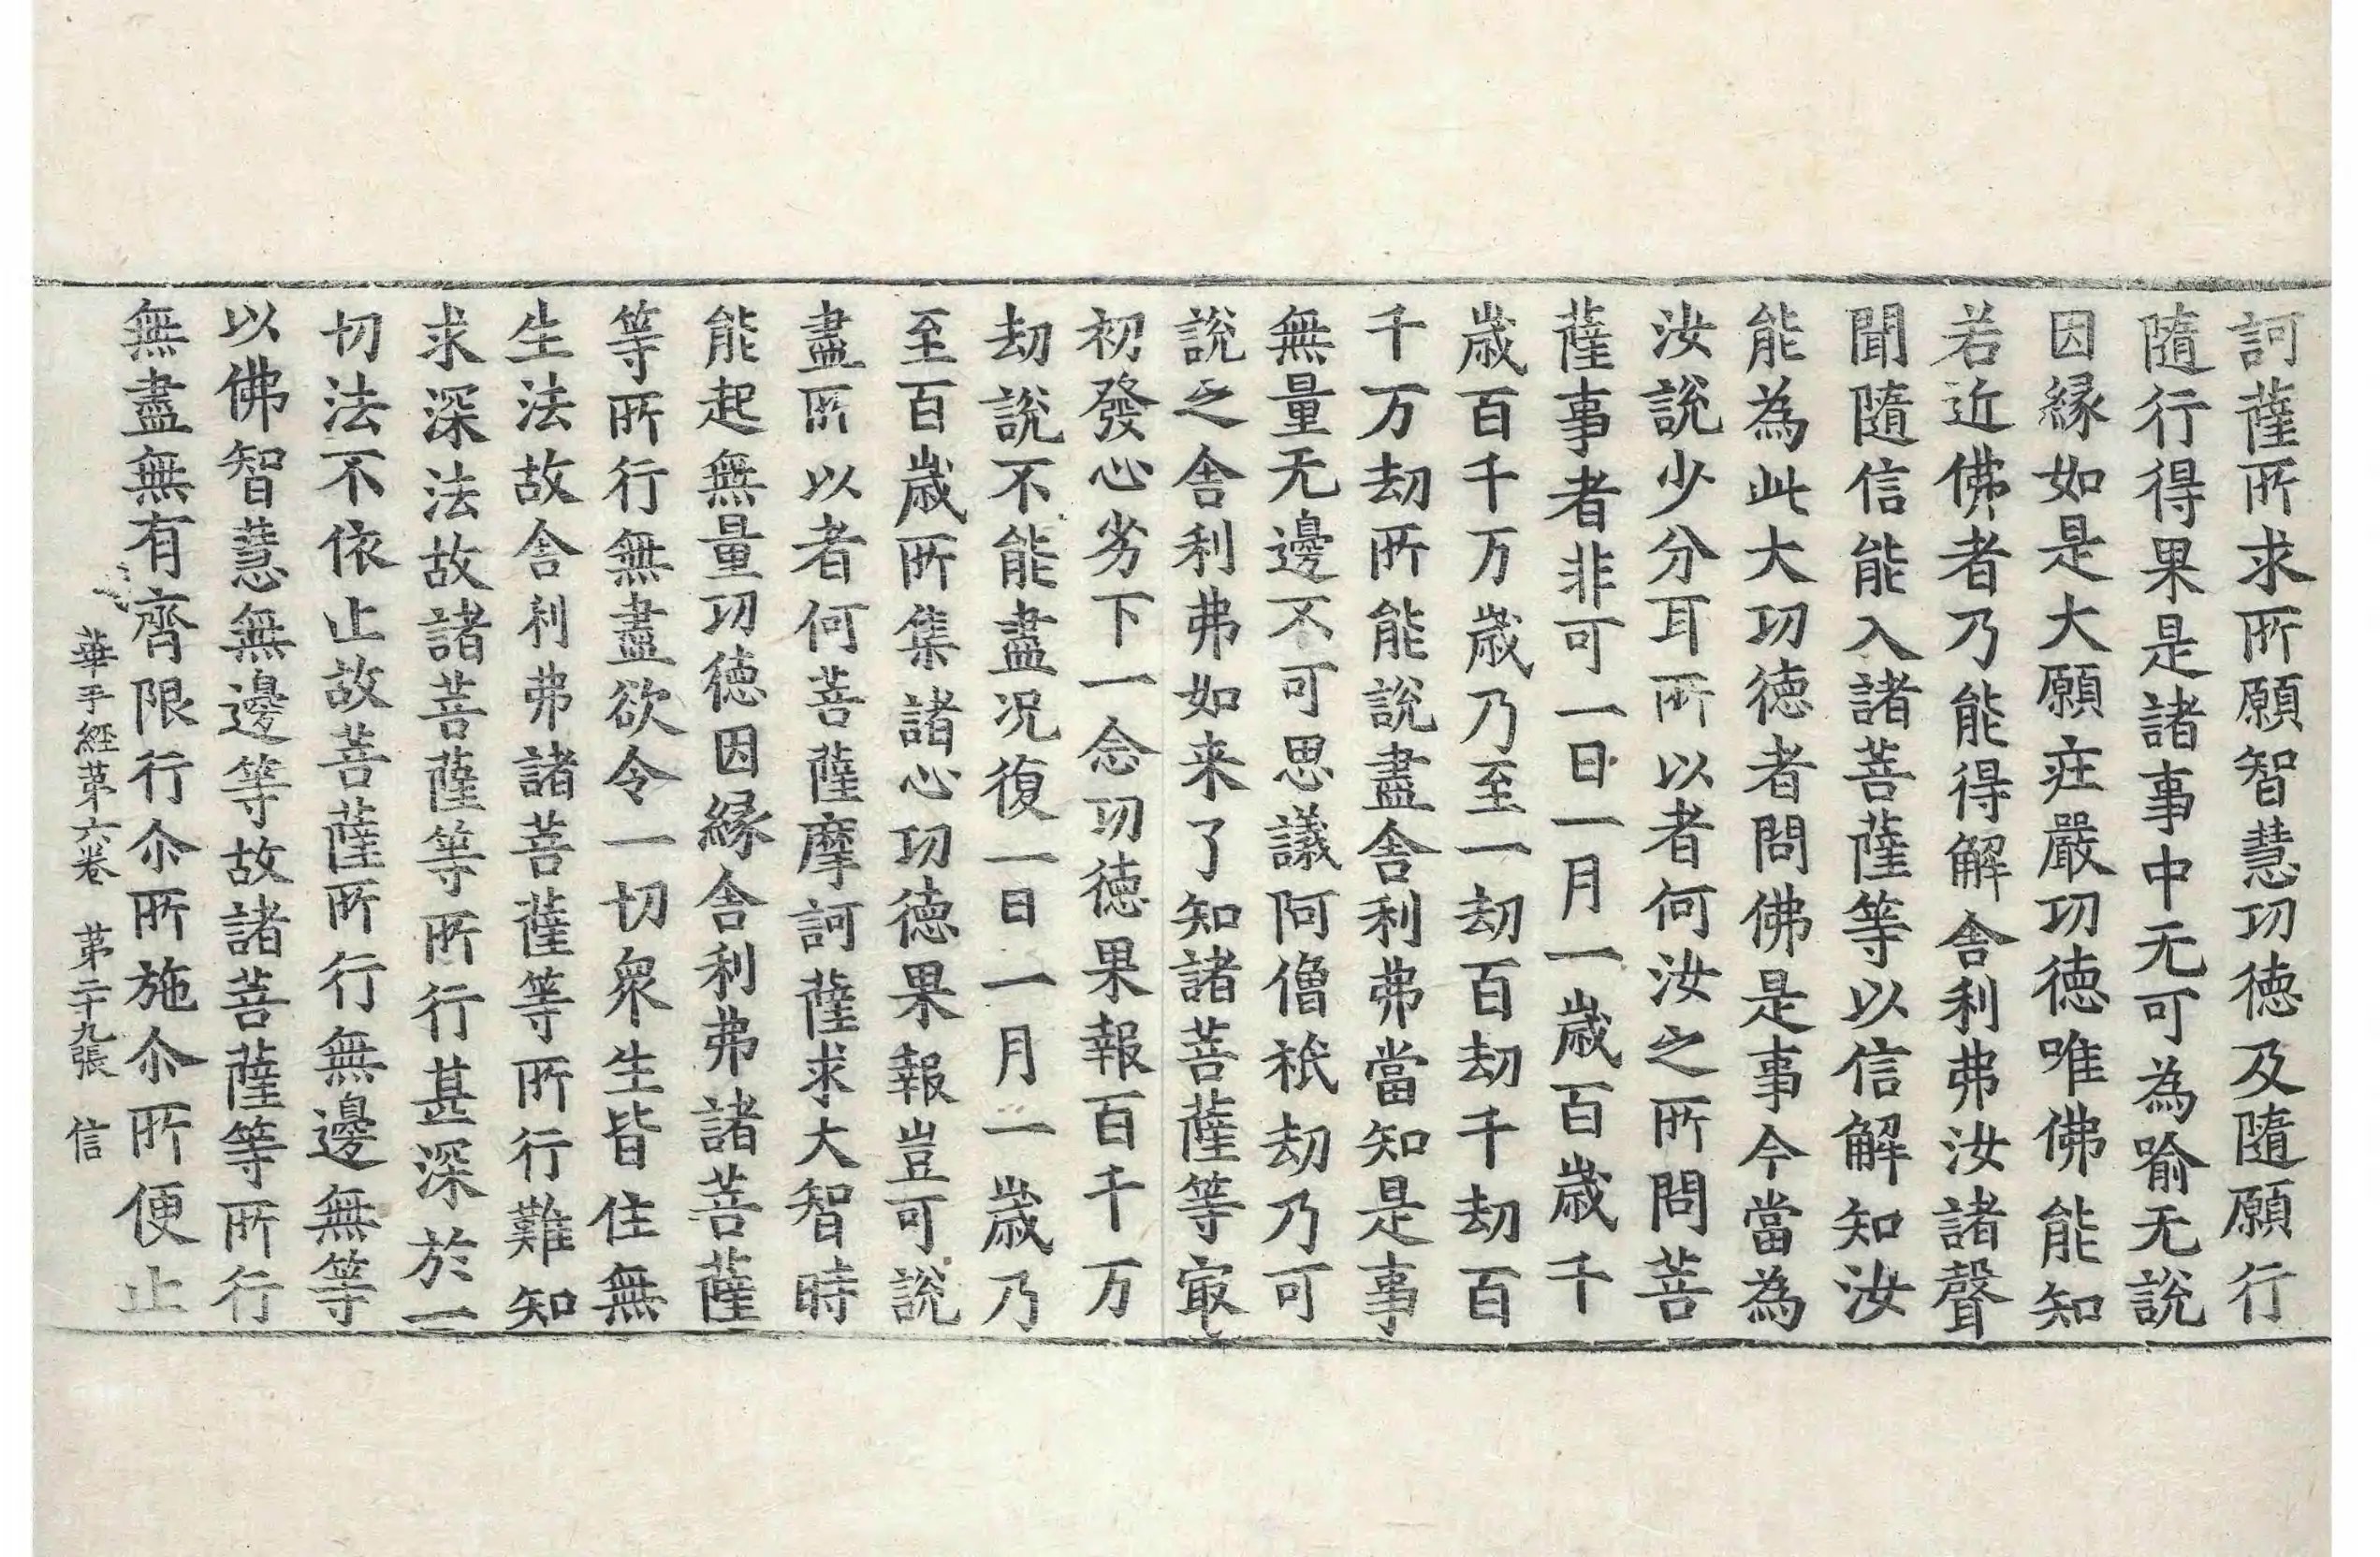 訶薩所求所願智慧功徳及隨願行
隨行得果是諸事中无可為喻无說
因縁如是大願疰嚴功徳唯佛能知
若近佛者乃能得解舎利弗汝諸聲
聞隨信能入諸菩薩等以信解知汝
能為此大功徳者問佛是事今當為
汝說少分耳所以者何汝之所問菩
薩事者非可一日一月一歲百歲千
歲百千万歲乃至一劫百劫千劫百
千万劫所能說盡舎利弗當知是事
無量无邊不可思議阿僧祇劫乃可
說之舎利弗如来了知諸菩薩等㝡
初發心劣下一念功徳果報百千万
劫說不能盡况復一日一月一歲乃
至百歲所集諸心功徳果報豈可說
盡所以者何菩薩摩訶薩求大智時
能起無量功徳因縁舎利弗諸菩薩
等所行無盡欲令一切衆生皆住無
生法故舎利弗諸菩薩等所行難知
求深法故諸菩薩等所行甚深於一
切法不依止故菩薩所行無邊無等
以佛智慧無邊等故諸菩薩等所行
無盡無有齊限行尒所施尒所便止
華手経第六卷 第二十九張 信